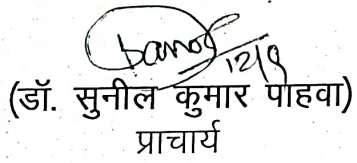 12/9
(डॉ. सुनील कुमार पाहवा)
प्राचार्य